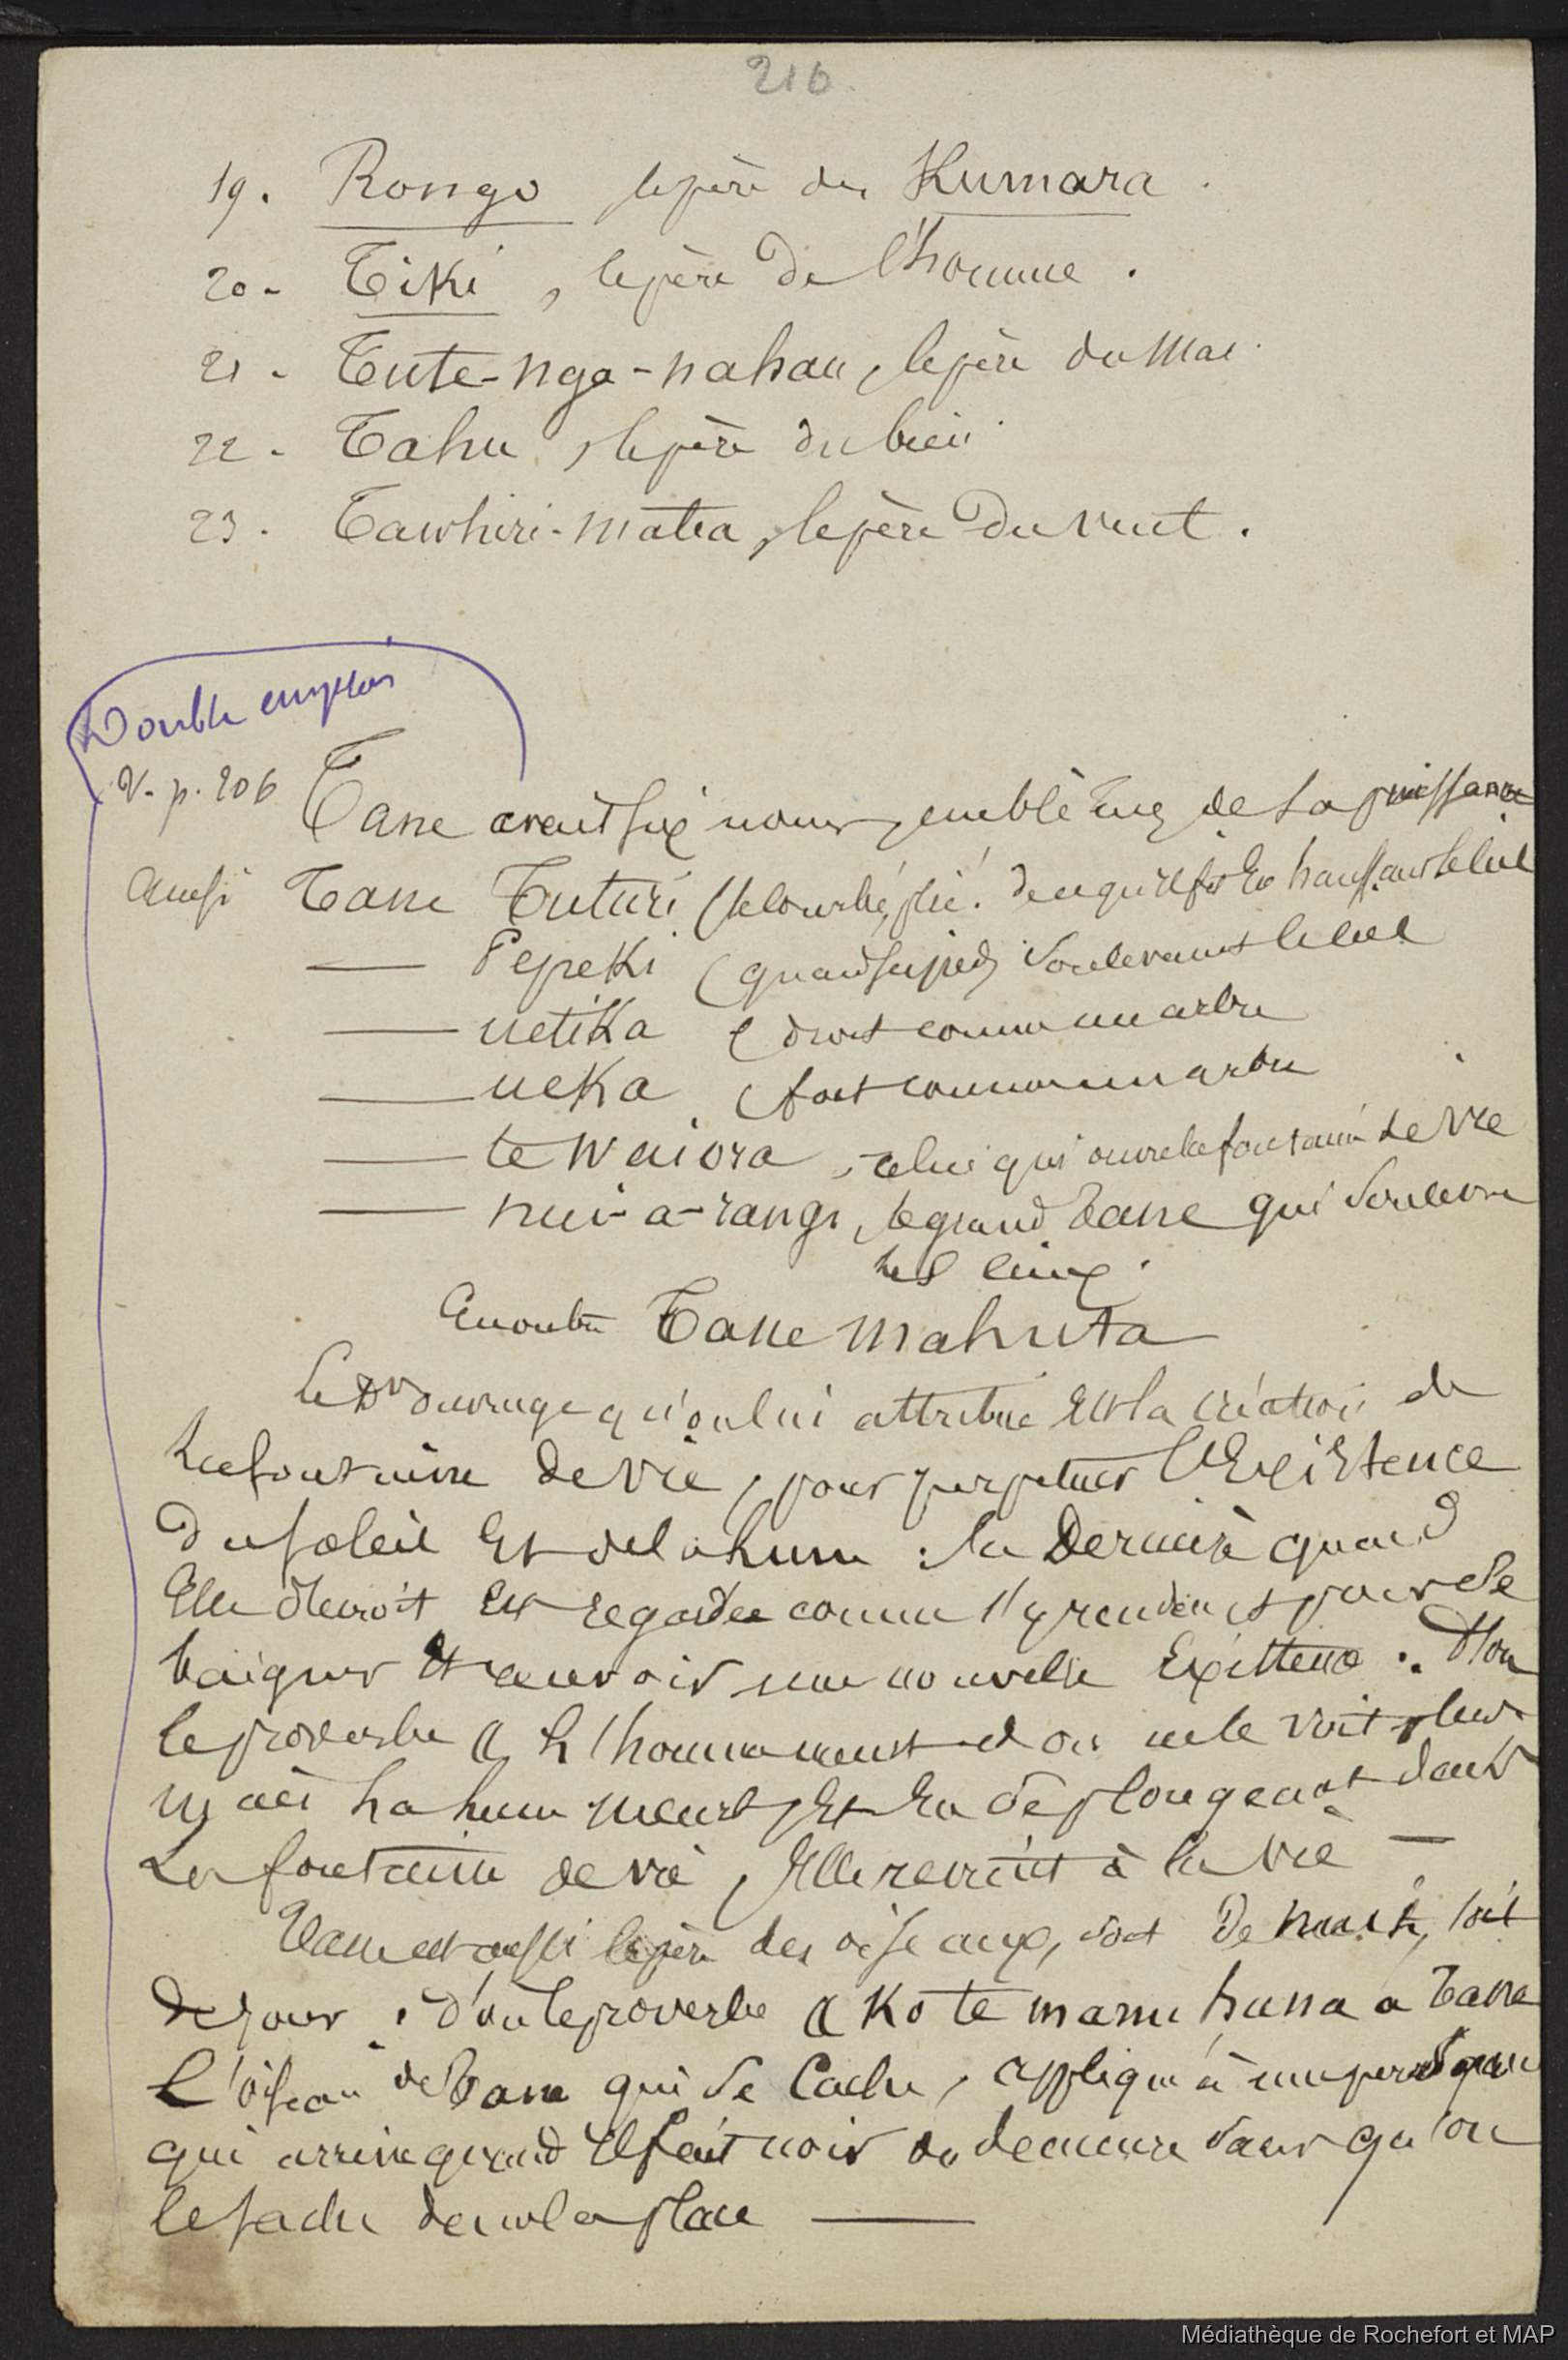 210.
19. Rongo le père des Kumara.
20 - Tiki, le père de l'homme.
21 - Tute-nga-nahau, le père du Mal.
22 - Tahu, le père du bien.
23. Tawhiri-matea, le père du vent.
Double emploi
V. p. 206
Tane avait six noms, emblème de sa puissance
Ainsi Tane Tuturi (le courbé, plié. de ce qu'il fit en haussant le ciel
— Pepeki (quand ses pieds soulevaient le ciel
— uetika (droit comme un arbre
— ueka (fort comme un arbre
— te Waiora, celui qui ouvre la fontaine de vie
— nui-a-rangi, le grand Tane qui souleva
les cieux.
En outre Tane mahuta
Le ouvrage qu'on lui attribue est la création de
la fontaine de vie, pour perpétuer l'Existence
du soleil et de la lune : la Dernière quand
Elle décroit est regardée comme s'y rendant pour se
baigner et avoir une nouvelle Existence. D'ou
le proverbe « L'homme meurt et on ne le voit plus
mais la lune meurt, et en se plongeant dans
La fontaine de vie, Elle revient à la vie —
Tane est aussi le père des oiseaux, soit de nuit, soit
de jour : d'ou le proverbe « Ko te manu huna a Tane
L'oiseau de Tane qui se Cache, appliqué à une personne
qui arrive quand il fait noir ou demeure sans qu'on
le sache dans la place —
Médiathèque de Rochefort et MAP